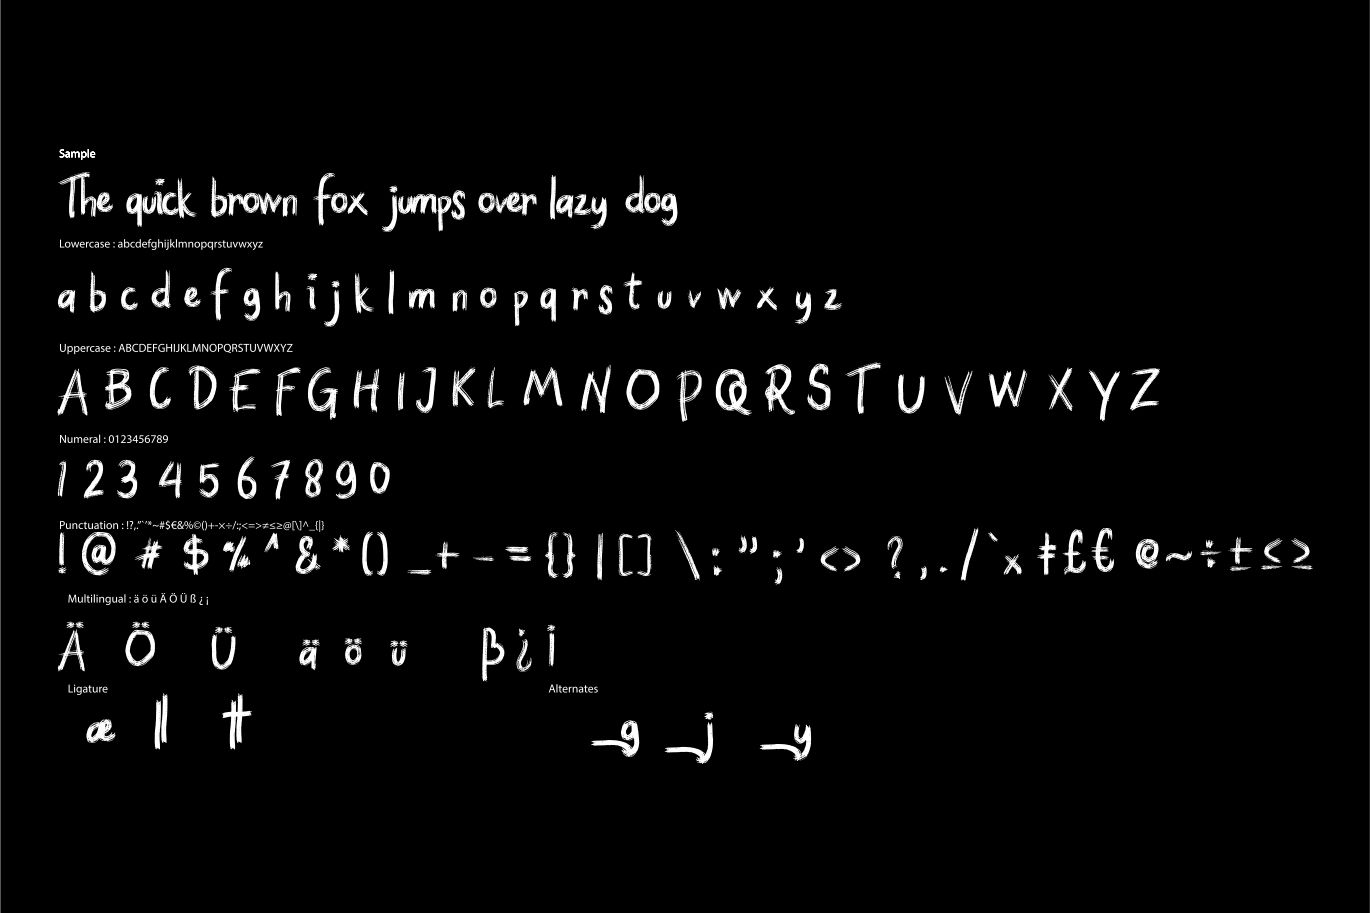 Sample
The quick brown fox jumps over lazy dog
Lowercase : abcdefghijklmnopqrstuvwxyz
a b c d e f g h i j k l m n o p q r s t u v w x y z
Uppercase : ABCDEFGHIJKLMNOPQRSTUVWXYZ
A B C D E F G H I J K L M N O P Q R S T U V W X Y Z
Numeral : 0123456789
1 2 3 4 5 6 7 8 9 0
Punctuation : !?,.”`´‘*~#$€&%©()+-×÷/:;<=>≠≤≥@[\]^_{|}
! @ # $ % ^ & * ( ) _ + - = { } | [ ] \ : ” ; ’ < > ? , . / ` x ǂ £ € © ~ ÷ ± ≤ ≥
Multilingual : ä ö ü Ä Ö Ü ß ¿ ¡
Ä Ö Ü ä ö ü ß ¿ ¡
Ligature Alternates
æ ll tt _g _j _y